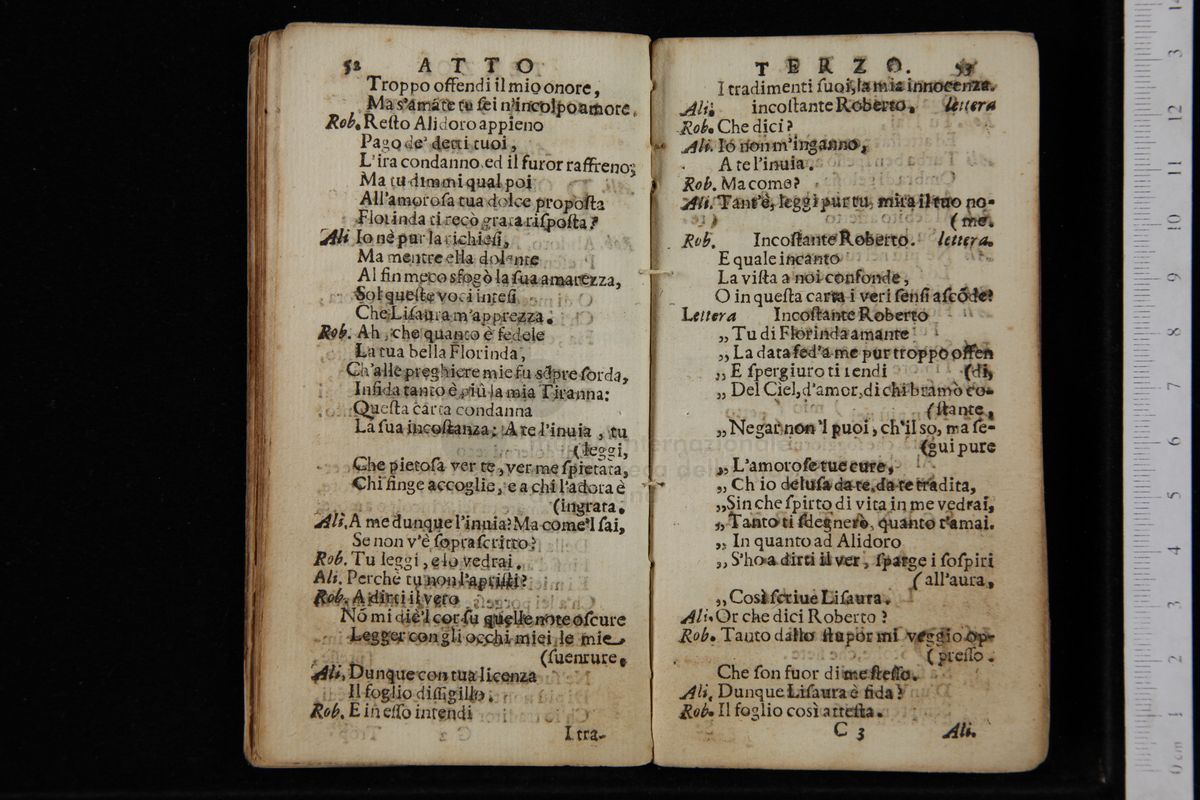 52 ATTO
Troppo offendi il mio onore,
Ma s'amate tu sei n'incolpo amore.
Rob. Reſto Alidoro appieno
Pago de' detti tuoi,
L'ira condanno, ed il furor raffreno;
Ma tu dimmi qual poi
All'amoroſa tua dolce propoſta
Florinda ti recò grata riſpoſta?
Ali Io nè pur la richieſi,
Ma mentre ella dolente
Al fin meco sfogò la ſua amarezza,
Sol queſte voci inteſi
Che Liſaura m'apprezza.
Rob. Ah, che quanto è fedele
La tua bella Florinda,
Ch'alle preghiere mie fu sẽpre ſorda,
Infida tanto è più la mia Tiranna:
Queſta carta condanna
La ſua incoſtanza: A te l'inuia, tu
(leggi,
Che pietoſa ver te, ver me ſpietata,
Chi finge accoglie, e a chi l'adora è
(ingrata.
Ali, A me dunque l'inuia? Ma come'l ſai,
Se non v'è ſopraſcritto?
Rob. Tu leggi, e lo vedrai.
Ali. Perchè tu non l'apriſti?
Rob. A dirti il vero
Nõ mi diè'l cor ſu quelle note oſcure
Legger con gli occhi miei le mie
(ſuenture.
Ali, Dunque con tua licenza
Il foglio diſſigillo.
Rob. E in eſſo intendi
I tra-
TERZO. 53
I tradimenti ſuoi, la mia innocenza.
Ali. incoſtante Roberto. lettera
Rob. Che dici?
Ali. Io non m'inganno,
A te l'inuia.
Rob. Ma come?
Ali. Tant'è, leggi pur tu, mira il tuo no-
(me.
Rob. Incoſtante Roberto. lettera.
E quale incanto
La viſta a noi confonde,
O in queſta carta i veri ſenſi aſcõde?
Lettera Incoſtante Roberto
„ Tu di Florinda amante
„ La data fed'a me pur troppo offen
„ E ſpergiuro ti rendi (di,
„ Del Ciel, d'amor, di chi bramò co-
(ſtante,
„ Negar non'l puoi, ch'il so, ma ſe-
(gui pure
„ L'amoroſe tue cure,
„ Ch io deluſa da te, da te tradita,
„Sin che ſpirto di vita in me vedrai,
„ Tanto ti ſdegnerò, quanto t'amai.
„ In quanto ad Alidoro
„ S'ho a dirti il ver, ſparge i ſoſpiri
(all'aura,
„ Così ſcriue Liſaura.
Ali. Or che dici Roberto?
Rob. Tanto dallo ſtupor mi veggio op-
(preſſo.
Che ſon fuor di me ſteſſo.
Ali. Dunque Liſaura è fida?
Rob. Il foglio così atteſta.
C 3 Ali.